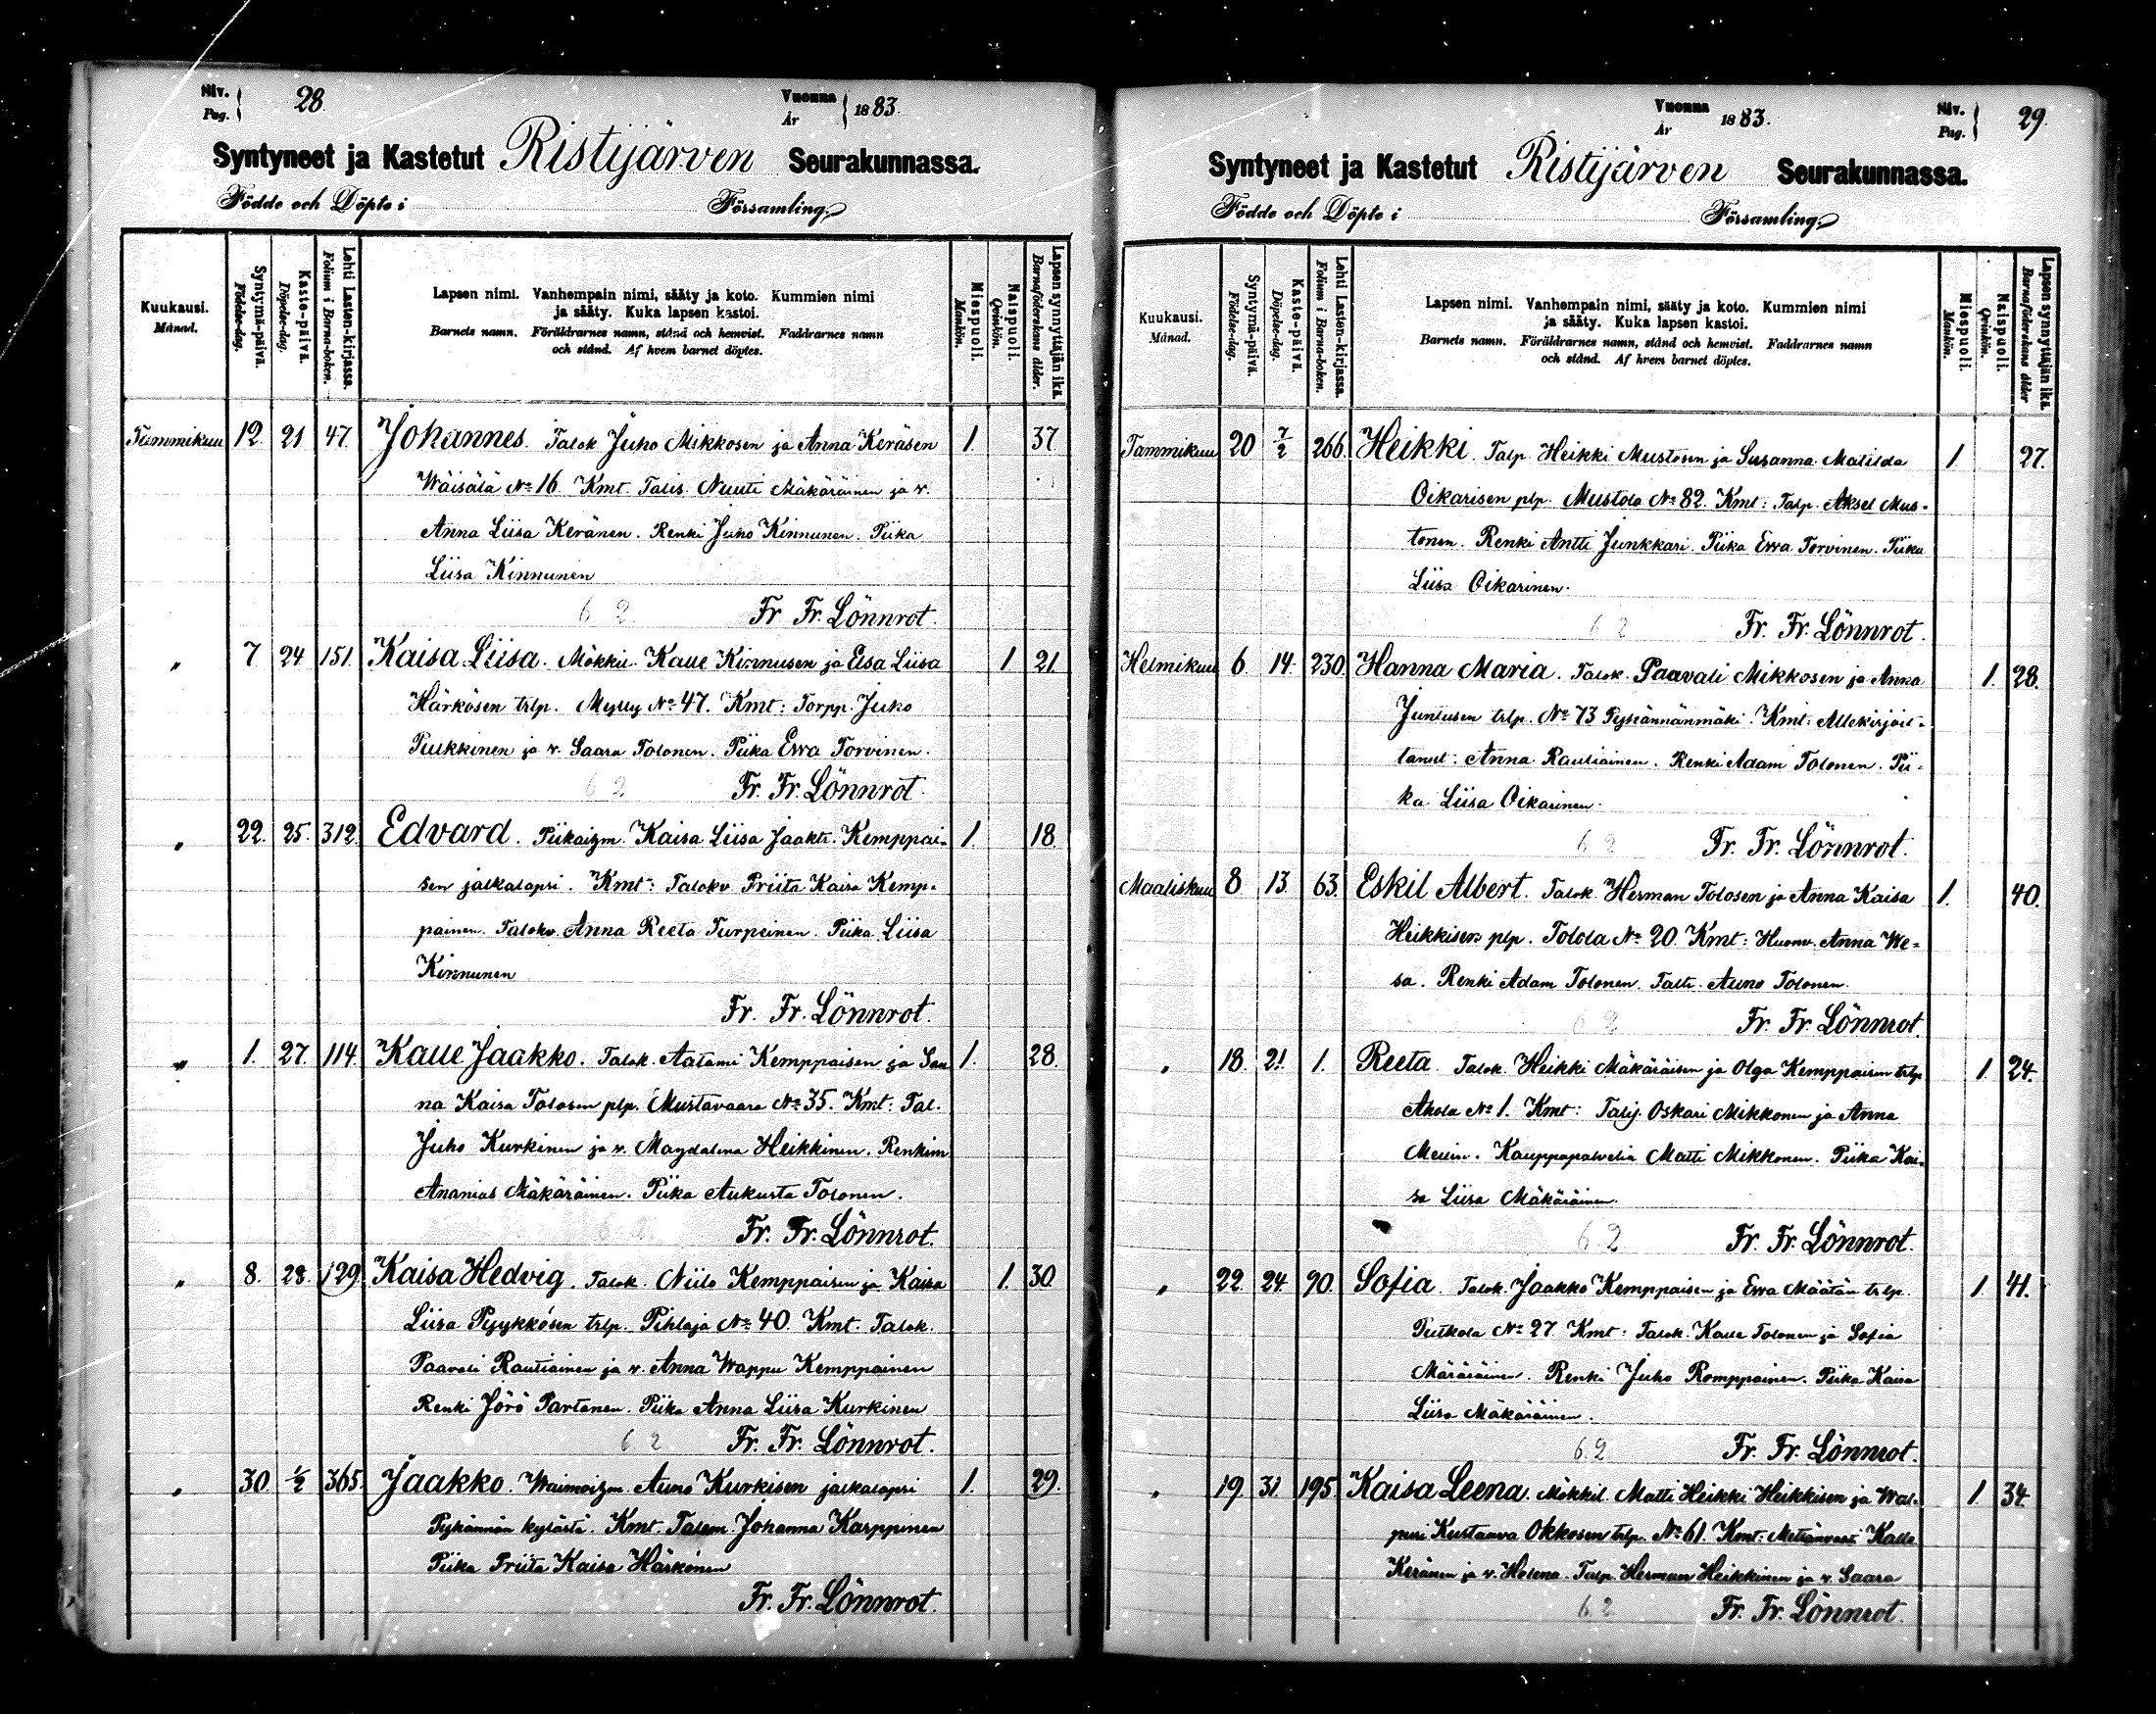 Siv. Pag. 28
Vuonna År 1883.
Syntyneet ja Kastetut Ristijärven Seurakunnassa.
Födde och Döpte i Församling.
Kuukausi. Månad.
Syntymä-päivä. Födelse-dag.
Kaste-päivä. Döpelse-dag.
Lehti Lasten-kirjassa. Folium i Barna-boken.
Lapsen nimi. Vanhempain nimi, sääty ja koto. Kummien nimi
ja sääty. Kuka lapsen kastoi.
Barnets namn. Föräldrarnes namn, stånd och hemvist. Faddrarnes namn
och stånd. Af hvem barnet döptes.
Miespuoli. Mankön.
Naispuoli. Qvinkön.
Lapsen synnyttäjän ikä. Barnaföderskans ålder.
Tammikuu 12. 21 47. Johannes. Talok Juho Mikkosen ja Anna Keräsen 1. 37
Wäisälä No 16. Kmt. Talis. Nuuti Mäkäräinen ja v.
Anna Liisa Keränen. Renki Juho Kinnunen. Piika
Liisa Kinnunen
6 2 Fr. Fr. Lönnrot.
" 7 24 151. Kaisa Liisa. Mökkil. Kalle Kinnusen ja Elsa Liisa 1 21.
Härkösen trlp. Mylly No 47. Kmt: Torpp. Juho
Pulkkinen ja v. Saara Tolonen. Piika Ewa Torvinen.
6 2 Fr. Fr. Lönnrot.
" 22. 25. 312. Edvard. Piikaizm. Kaisa Liisa Jaakt. Kemppai- 1. 18
sen jalkalapsi. Kmt: Talokv Priita Kaisa Kemp-
painen. Talokv. Anna Reeta Turpeinen. Piika Liisa
Kinnunen
Fr. Fr. Lönnrot.
" 1. 27. 114. Kalle Jaakko. Talok. Aatami Kemppaisen ja San 1. 28.
na Kaisa Tolosen plp. Mustavaara No 35. Kmt: Tal.
Juho Kurkinen ja v. Magdalena Heikkinen. Renkim
Ananias Mäkäräinen. Piika Aukusta Tolonen.
6 2 Fr. Fr. Lönnrot.
" 8. 28. 129. Kaisa Hedvig. Talok. Niilo Kemppaisen ja Kaisa 1. 30
Liisa Pyykkösen trlp. Pihlaja No 40. Kmt. Talok.
Paavali Rautiainen ja v. Anna Wappu Kemppainen
Renki Jörö Partanen. Piika Anna Liisa Kurkinen
6 2 Fr. Fr. Lönnrot.
" 30. 1/2 365. Jaakko. Waimoizm. Auno Kurkisen jalkalapsi 1. 29.
Pyhännän kylästä. Kmt. Talem. Johanna Karppinen
Piika Priita Kaisa Härkönen
Fr. Fr. Lönnrot.
Vuonna År 1883.
Siv. Pag. 29.
Syntyneet ja Kastetut Ristijärven Seurakunnassa.
Födde och Döpte i Församling.
Kuukausi. Månad.
Syntymä-päivä. Födelse-dag.
Kaste-päivä. Döpelse-dag.
Lehti Lasten-kirjassa. Folium i Barna-boken.
Lapsen nimi. Vanhempain nimi, sääty ja koto. Kummien nimi
ja sääty. Kuka lapsen kastoi.
Barnets namn. Föräldrarnes namn, stånd och hemvist. Faddrarnes namn
och stånd. Af hvem barnet döptes.
Miespuoli. Mankön.
Naispuoli. Qvinkön.
Lapsen synnyttäjän ikä. Barnaföderskans ålder
Tammikuu 20 7/2 266. Heikki. Talp. Heikki Mustosen ja Susanna Matilda 1 27.
Oikarisen plp. Mustola No 82. Kmt: Talp. Aksel Mus-
tonen. Renki Antti Junkkari. Piika Ewa Torvinen. Piika
Liisa Oikarinen.
6 2 Fr. Fr. Lönnrot.
Helmikuu 6. 14. 230. Hanna Maria. Talok. Paavali Mikkosen ja Anna 1. 28.
Juntusen trlp. No 73 Pyhännänmäki. Kmt: Allekirjoit-
tanut: Anna Rautiainen. Renki Adam Tolonen. Pii-
ka Liisa Oikarinen.
6 2 Fr. Fr. Lönnrot.
Maaliskuu 8. 13. 63. Eskil Albert. Talok. Herman Tolosen ja Anna Kaisa 1. 40.
Heikkisen plp. Tolola No 20. Kmt: Huonv. Anna We-
sa. Renki Adam Tolonen. Taltt. Auno Tolonen.
6 2 Fr. Fr. Lönnrot.
" 18. 21. 1. Reeta. Talok. Heikki Mäkäräisen ja Olga Kemppaisen trlp 1. 24.
Ahola No 1. Kmt: Talij. Oskari Mikkonen ja Anna
Kauppapalvelia Matti Mikkonen. Piika Kai-
sa Liisa Mäkäräinen.
6 2 Fr. Fr. Lönnrot.
" 22. 24. 90. Sofia. Talok. Jaakko Kemppaisen ja Ewa Määtän trlp. 1. 41.
No 27. Kmt: Talok. Kalle Tolonen ja Sofia
Määräinen. Renki Juho Romppainen. Piika Kaisa
Liisa Mäkäräinen.
6 2 Fr. Fr. Lönnrot.
" 19 31. 195. Kaisa Leena. Mökkil. Matti Heikki Heikkisen ja Wal- 1. 34.
puri Kustaava Okkosen trlp. No 61. Kmt: Metsänvarti Kalle
Keränen ja v. Helena. Talp. Herman Heikkinen ja v. Saara
6 2 Fr. Fr. Lönnrot.